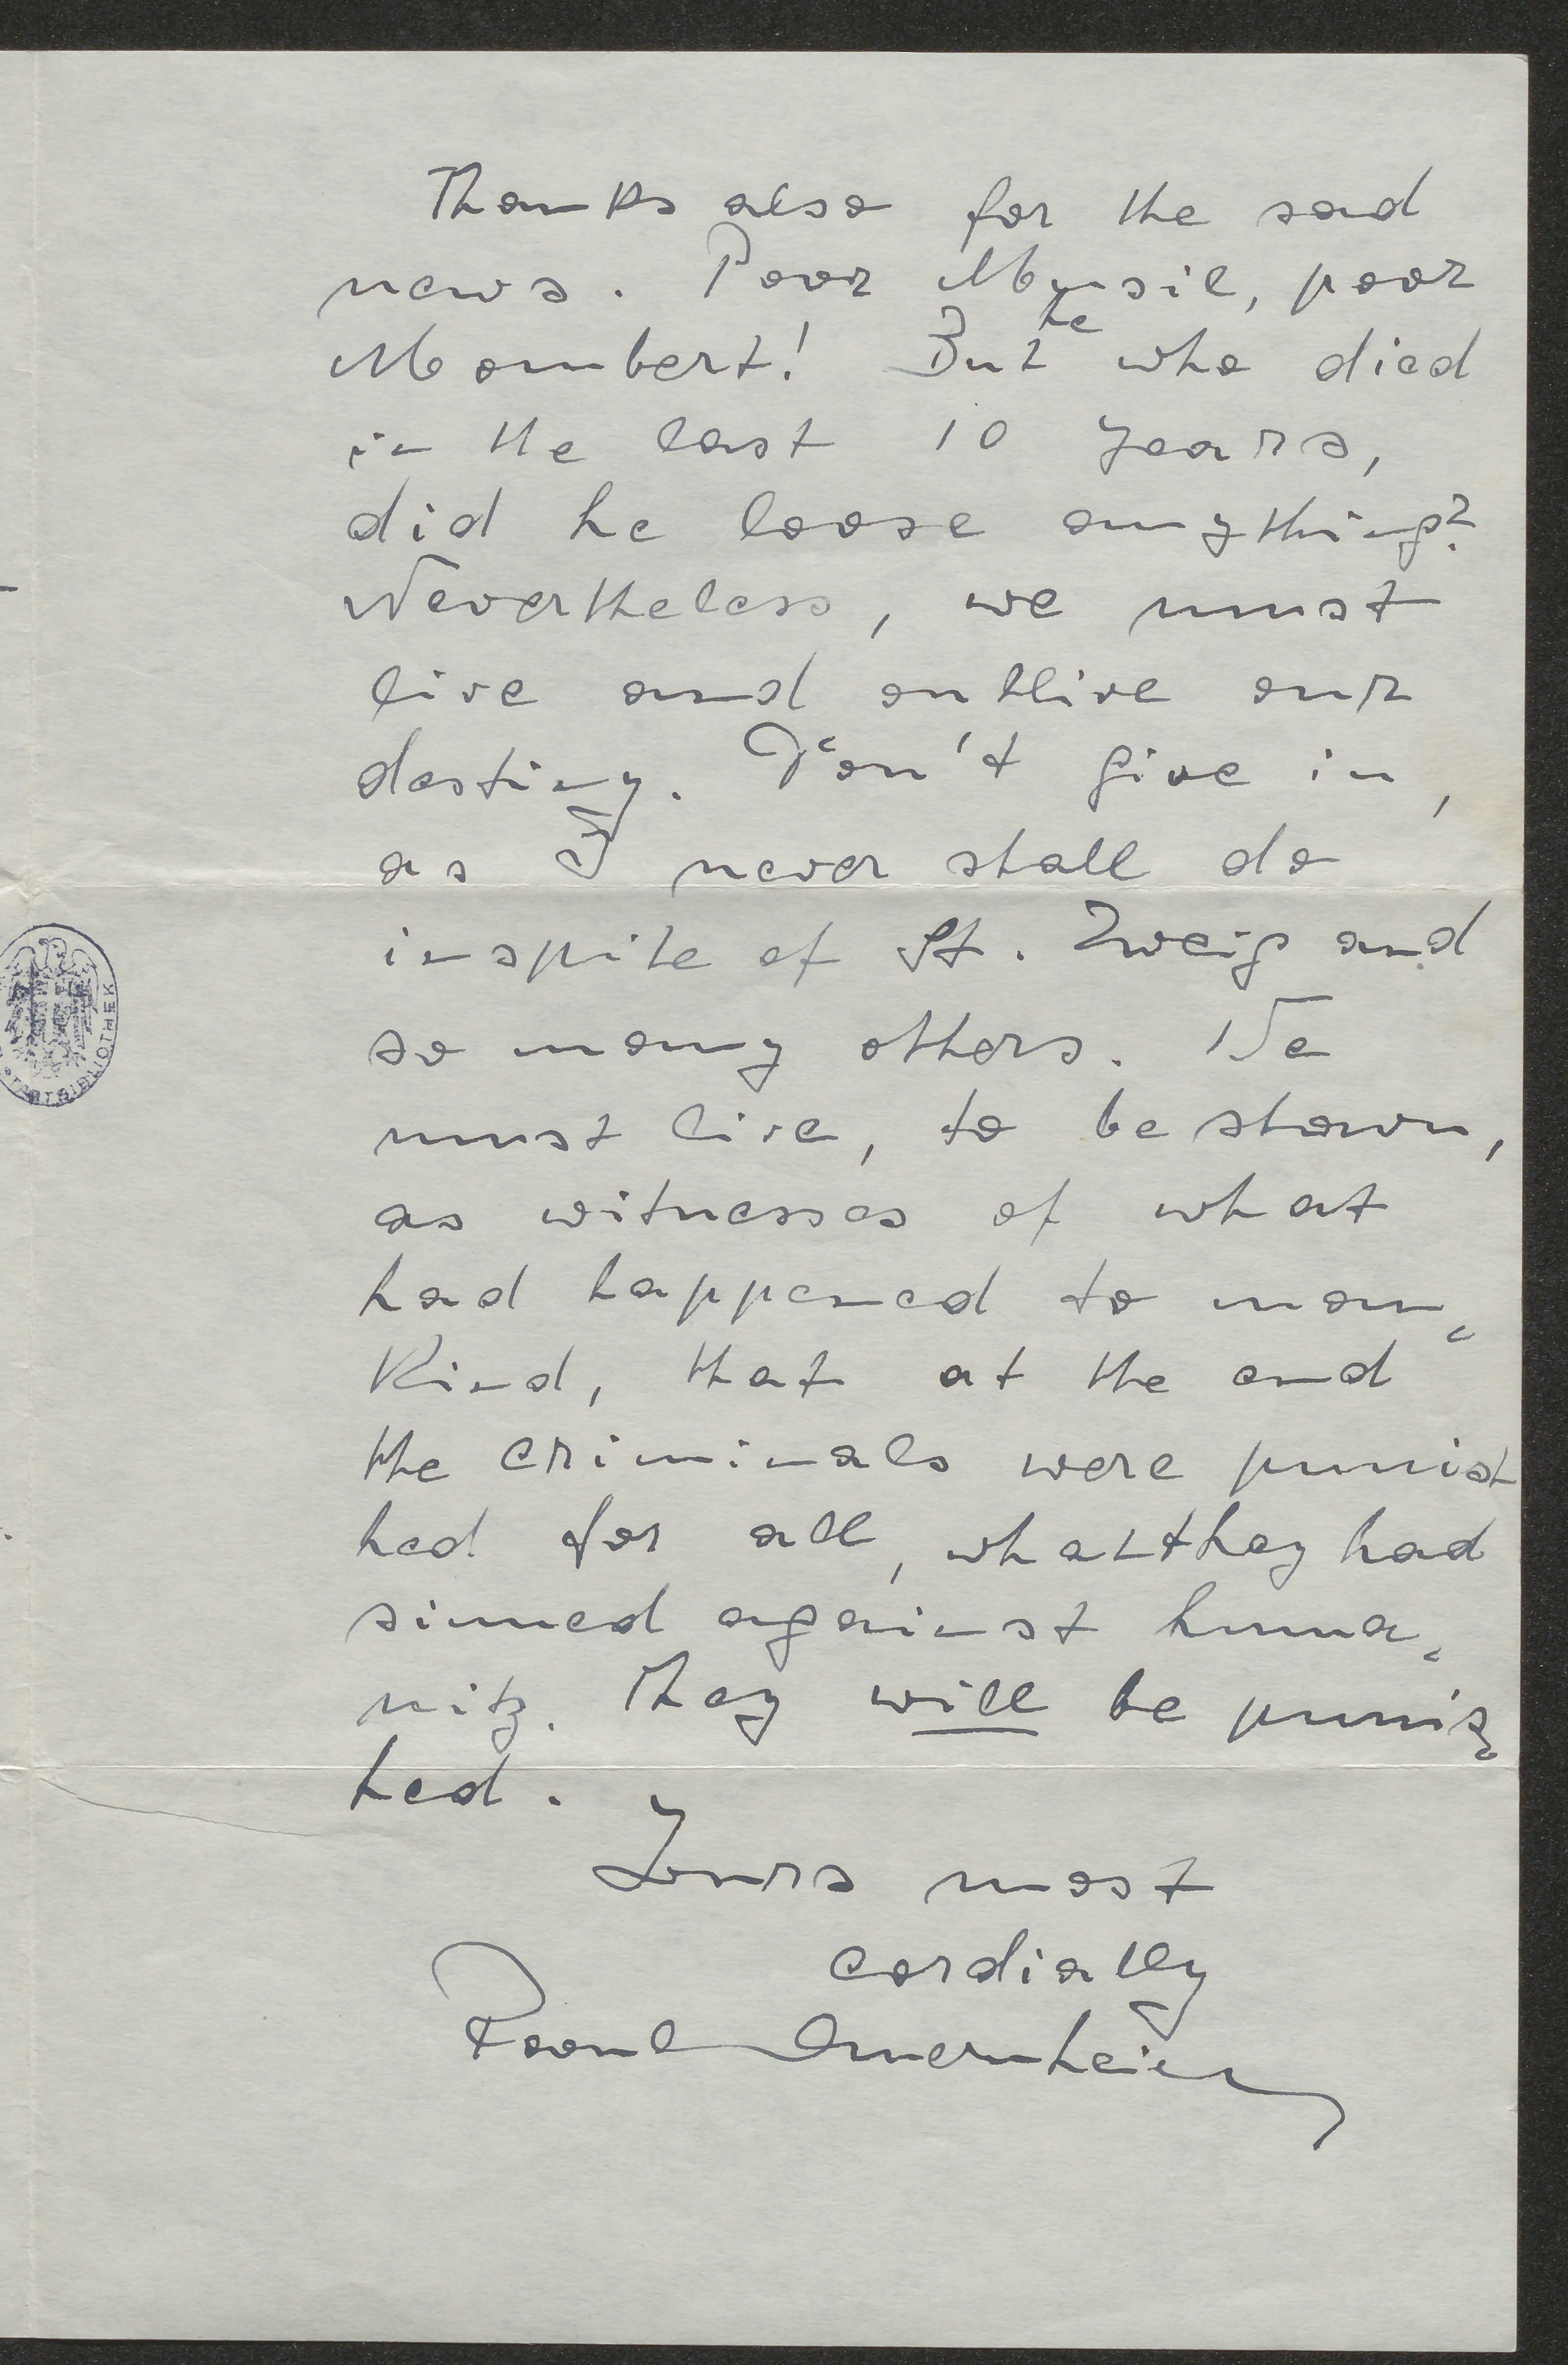 Thanks also for the sad
news. Poor Musil, poor
Mombert! But he who died
in the last 10 years,
did he loose anything?
Nevertheless, we must
live and outlive our
destiny. Don't give in,
as I never shall do
inspite of St. Zweig and
so many others. We
must live, to be shown,
as witnesses of what
had happened to man-
kind, that at the end
the criminals were punis-
hed for all, what they had
sinned against huma-
nity. They will be punis-
hed.
Yours most
cordially
Raoul Auernheimer
BIBLIOTHEK